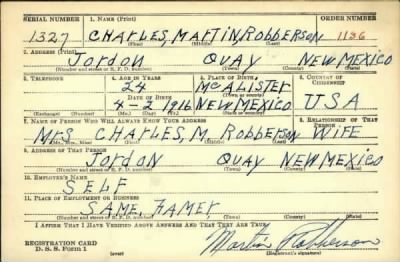 SERIAL NUMBER 1. NAME (Print) ORDER NUMBER
1327 CHARLES, MARTIN, ROBBERSON 1136
(First) (Middle) (Last)
2. ADDRESS (Print)
Jordon QUAY NEW MEXICO
(Number and street or R. F. D. number) (Town) (County) (State)
3. TELEPHONE 4. AGE IN YEARS 5. PLACE OF BIRTH 6. COUNTRY OF CITIZENSHIP
24 MCALISTER
DATE OF BIRTH (Town or county)
4-2 1916 NEW MEXICO USA
(Exchange) (Number) (Mo.) (Day) (Yr.) (State or country)
7. NAME OF PERSON WHO WILL ALWAYS KNOW YOUR ADDRESS 8. RELATIONSHIP OF THAT PERSON
MRS CHARLES, M. ROBBERSON WIFE
(Mr., Mrs., Miss) (First) (Middle) (Last)
9. ADDRESS OF THAT PERSON
JORDON QUAY NEW MEXICO
(Number and street or R. F. D. number) (Town) (County) (State)
10. EMPLOYER'S NAME
SELF
11. PLACE OF EMPLOYMENT OR BUSINESS
SAME, FAMER
(Number and street or R. F. D. number) (Town) (County) (State)
I AFFIRM THAT I HAVE VERIFIED ABOVE ANSWERS AND THAT THEY ARE TRUE.
REGISTRATION CARD Martin Robberson
D. S. S. Form 1 (over) (Registrant's signature)